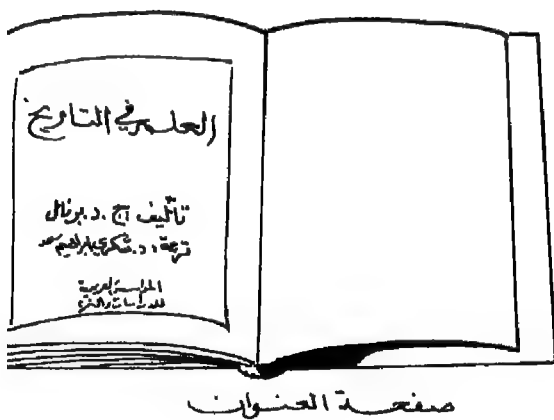 العلم في التاريخ
تأليف ج . د . برنال
ترجمة : د . شكري ابراهيم سعد
المؤسسة العربية
للدراسات والنشر
صفحة العنوان